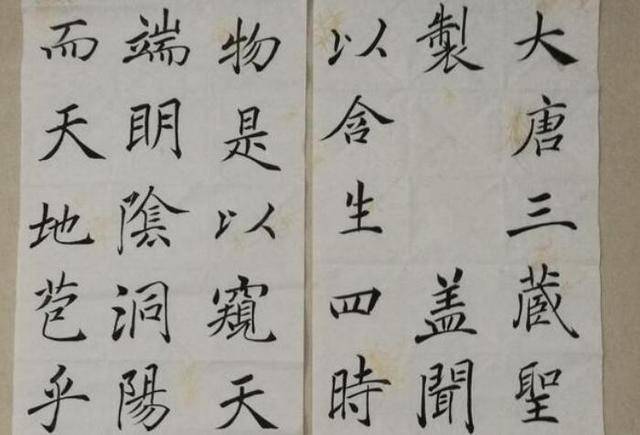 大唐三藏聖
製盖聞
以含生四時
物是以窺天
端明陰洞陽
而天地苞乎